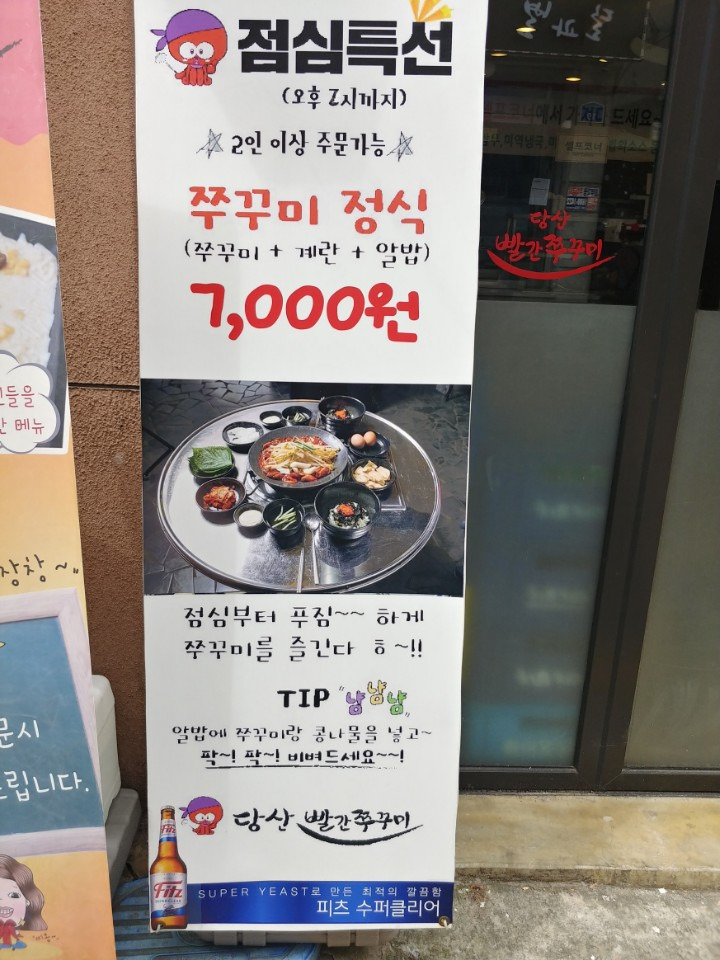 점심특선
(오후 2시까지)
2인 이상 주문가능
쭈꾸미 정식
(쭈꾸미 + 계란 + 알밥)
7,000원
점심부터 푸짐~~ 하게
쭈꾸미를 즐긴다 ㅎ~!!
TIP "냠냠냠"
알밥에 쭈꾸미랑 콩나물을 넣고~
팍~! 팍~! 비벼드세요~~!
당산 빨간쭈꾸미
Fitz
SUPER YEAST로 만든 최적의 깔끔함
피츠 수퍼클리어
당산
빨간쭈꾸미
드세요~
셀프코너
메뉴
문시
드립니다.